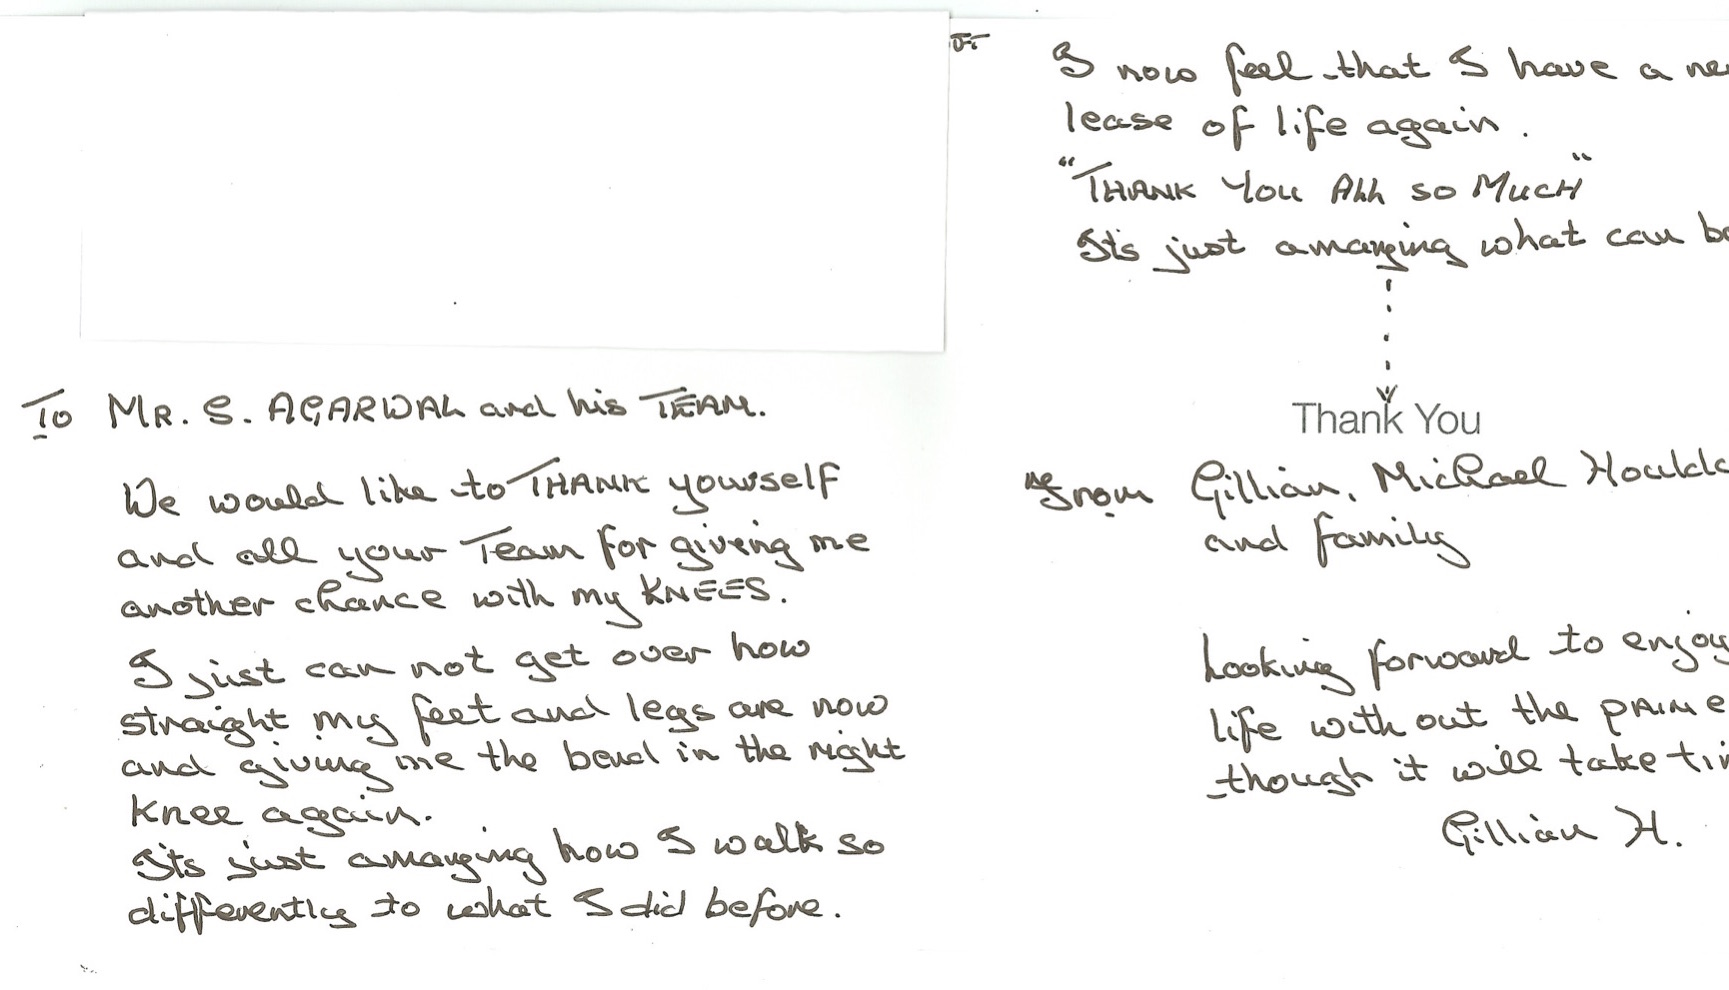 To MR. S. AGARWAL and his TEAM.
We would like to THANK yourself
and all your Team for giving me
another chance with my KNEES.
I just can not get over how
straight my feet and legs are now
and giving me the bend in the right
knee again.
Its just amazing how I walk so
differently to what I did before.
I now feel that I have a ne
lease of life again.
"THANK YOU ALL SO MUCH"
Its just amazing what can b
Thank You
from Gillian, Michael Hould
and family
Looking forward to enjoy
life with out the PAIN e
though it will take ti
Gillian H.